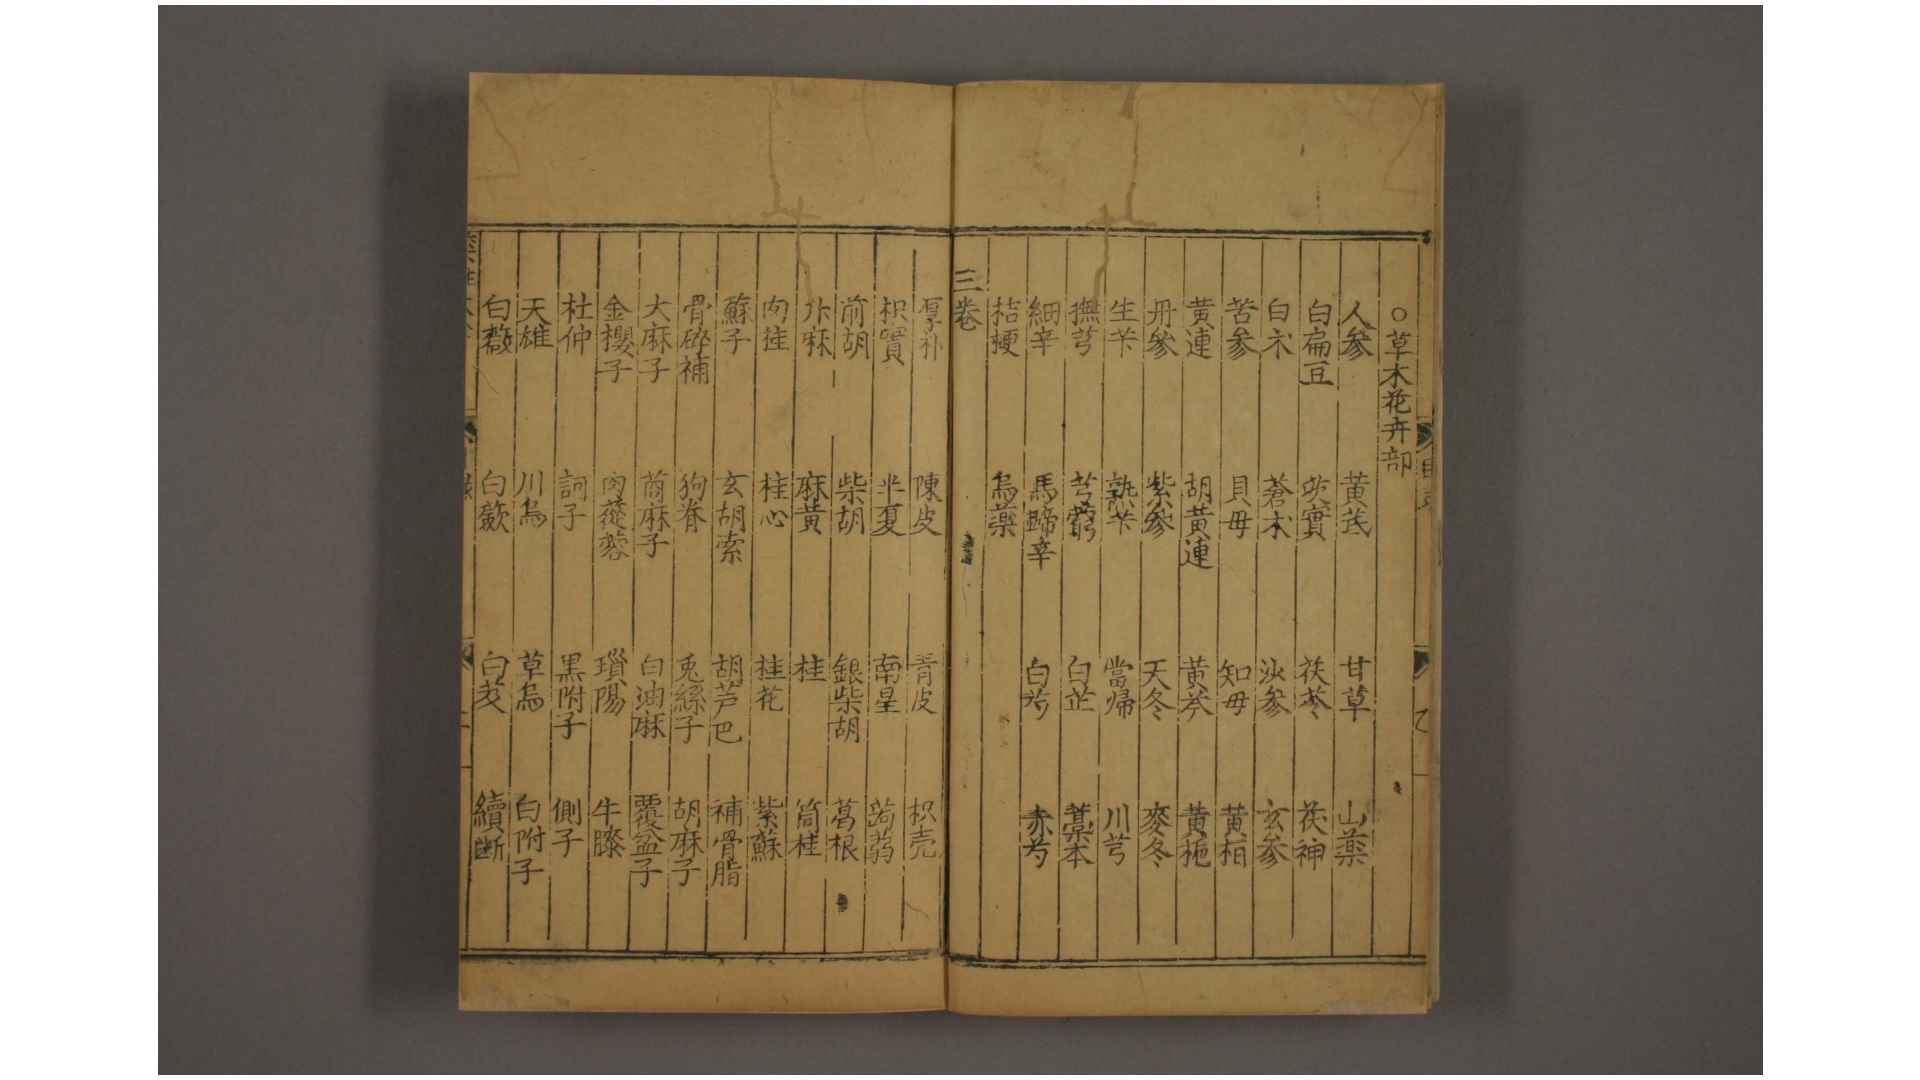 ○草木花卉部
人参 黄茋 甘草 山藥
白扁豆 茨實 茯苓 茯神
白术 蒼术 沙參 玄参
苦参 貝母 知母 黄栢
黄連 胡黄連 黄芩 黄梔
丹參 紫參 天冬 麥冬
生芐 熟芐 當帰 川芎
撫芎 芎藭 白芷 藁本
細辛 馬蹄辛 白芍 赤芍
桔梗 烏藥
三巻
厚朴 陳皮 青皮 枳壳
枳實 半夏 南星 蒟蒻
前胡 柴胡 銀柴胡 葛根
升麻 麻黄 桂 筒桂
肉桂 桂心 桂花 紫蘇
蘇子 玄胡索 胡芦巴 補骨脂
骨碎補 狗脊 兎絲子 胡麻子
大麻子 䔛麻子 白油麻 覆盆子
金櫻子 肉蓯蓉 瑣陽 牛膝
杜仲 訶子 黒附子 側子
天雄 川烏 草烏 白附子
白薇 白蘞 白芨 續断